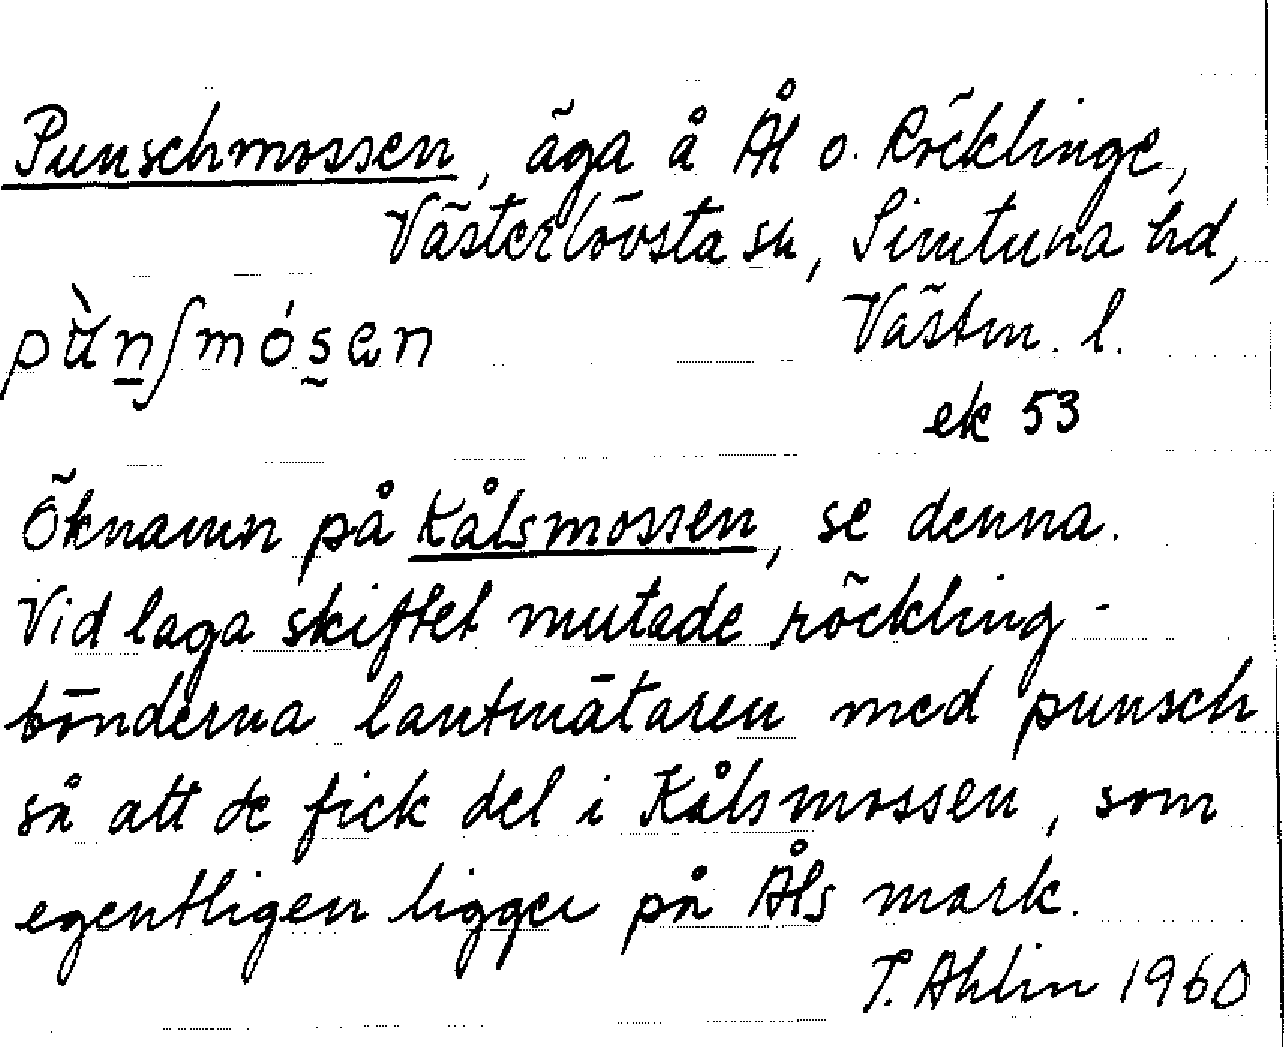 Punschmossen, äga å Ål o. Röcklinge,
Västerlövsta sn, Simtuna hd,
Västm. l.
pùnʃmósən
ek 53
Öknamn på Kålsmossen, se denna.
Vid laga skiftet mutade röckling-
bönderna lantmätaren med punsch
så att de fick del i Kålsmossen, som
egentligen ligger på Åls mark.
T. Ahlin 1960